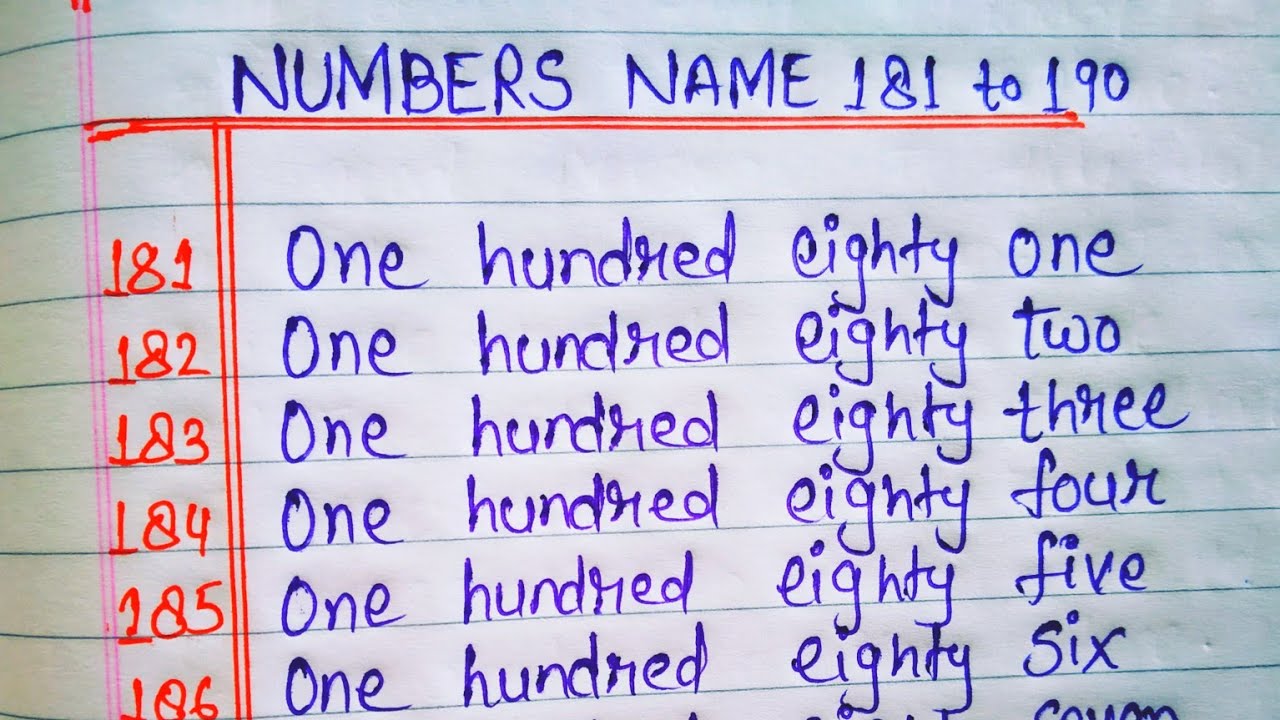 NUMBERS NAME 181 to 190
181 One hundred eighty one
182 One hundred eighty two
183 One hundred eighty three
184 One hundred eighty four
185 One hundred eighty five
186 One hundred eighty six